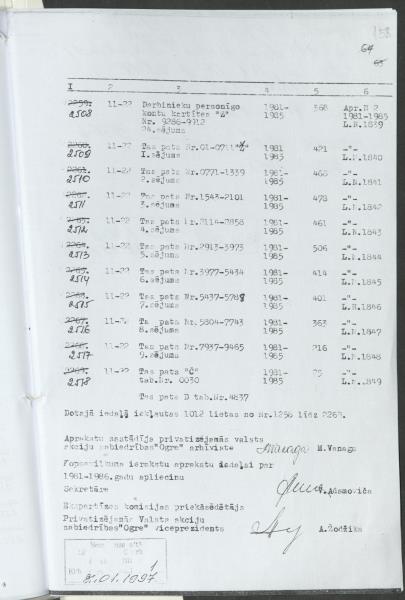 158
64
65
1 2 3 4 5 6
2259. 11-22 Darbinieku personīgo 1981- 368 Apr.N 2
2508 kontu kartītes "Z" 1985 1981-1985
Nr. 9286-9912 L.N.1839
24.sējums
2509 11-22 Tas pats Nr.01-0711 "Ž" 1981 421 -"-
1.sējums 1985 L.N.1840
2510 11-22 Tas pats Nr.0771-1339 1981- 468 -"-
2.sējums 1985 L.N.1841
2511 11-22 Tas pats Nr.1543-2101 1981- 478 -"-
3.sējums 1985 L.N.1842
2512 11-22 Tas pats Nr.2114-2858 1981- 461 -"-
4.sējums 1985 L.N.1843
2264. 11-22 Tas pats Nr.2913-3973 1981- 506 -"-
2513 5.sējums 1985 L.N.1844
2265. 11-22 Tas pats Nr.3977-5434 1981- 414 -"-
2514 6.sējums 1985 L.N.1845
2266. 11-22 Tas pats Nr.5437-5788 1981- 401 -"-
2515 7.sējums 1985 L.N.1846
2267. 11-22 Tas pats Nr.5804-7743 1981- 363 -"-
2516 8.sējums 1985 L.N.1847
2268. 11-22 Tas pats Nr.7937-9465 1981- 216 -"-
2517 9.sējums 1985 L.N.1848
2269. 11-22 Tas pats "Č" 1981- -"-
2518 tab.Nr. 0030 1985 L.N.1849
Tas pats D tab.Nr.4837
Dotajā iedaļā iekļautas 1012 lietas no Nr.1256 līdz 2269.
Aprakstu sastādīja privatizējamās valsts
akciju sabiedrības"Ogre" arhivāre M.Vanaga
ierakstu aprakstu iedaļai par
1981-1986.gadu apliecinu
Sekretāre Adamoviča
Ekspertīzes komisijas priekšsēdētājs
Privatizējamās Valsts akciju
sabiedrības"Ogre" viceprezidents A.Žodžika
1